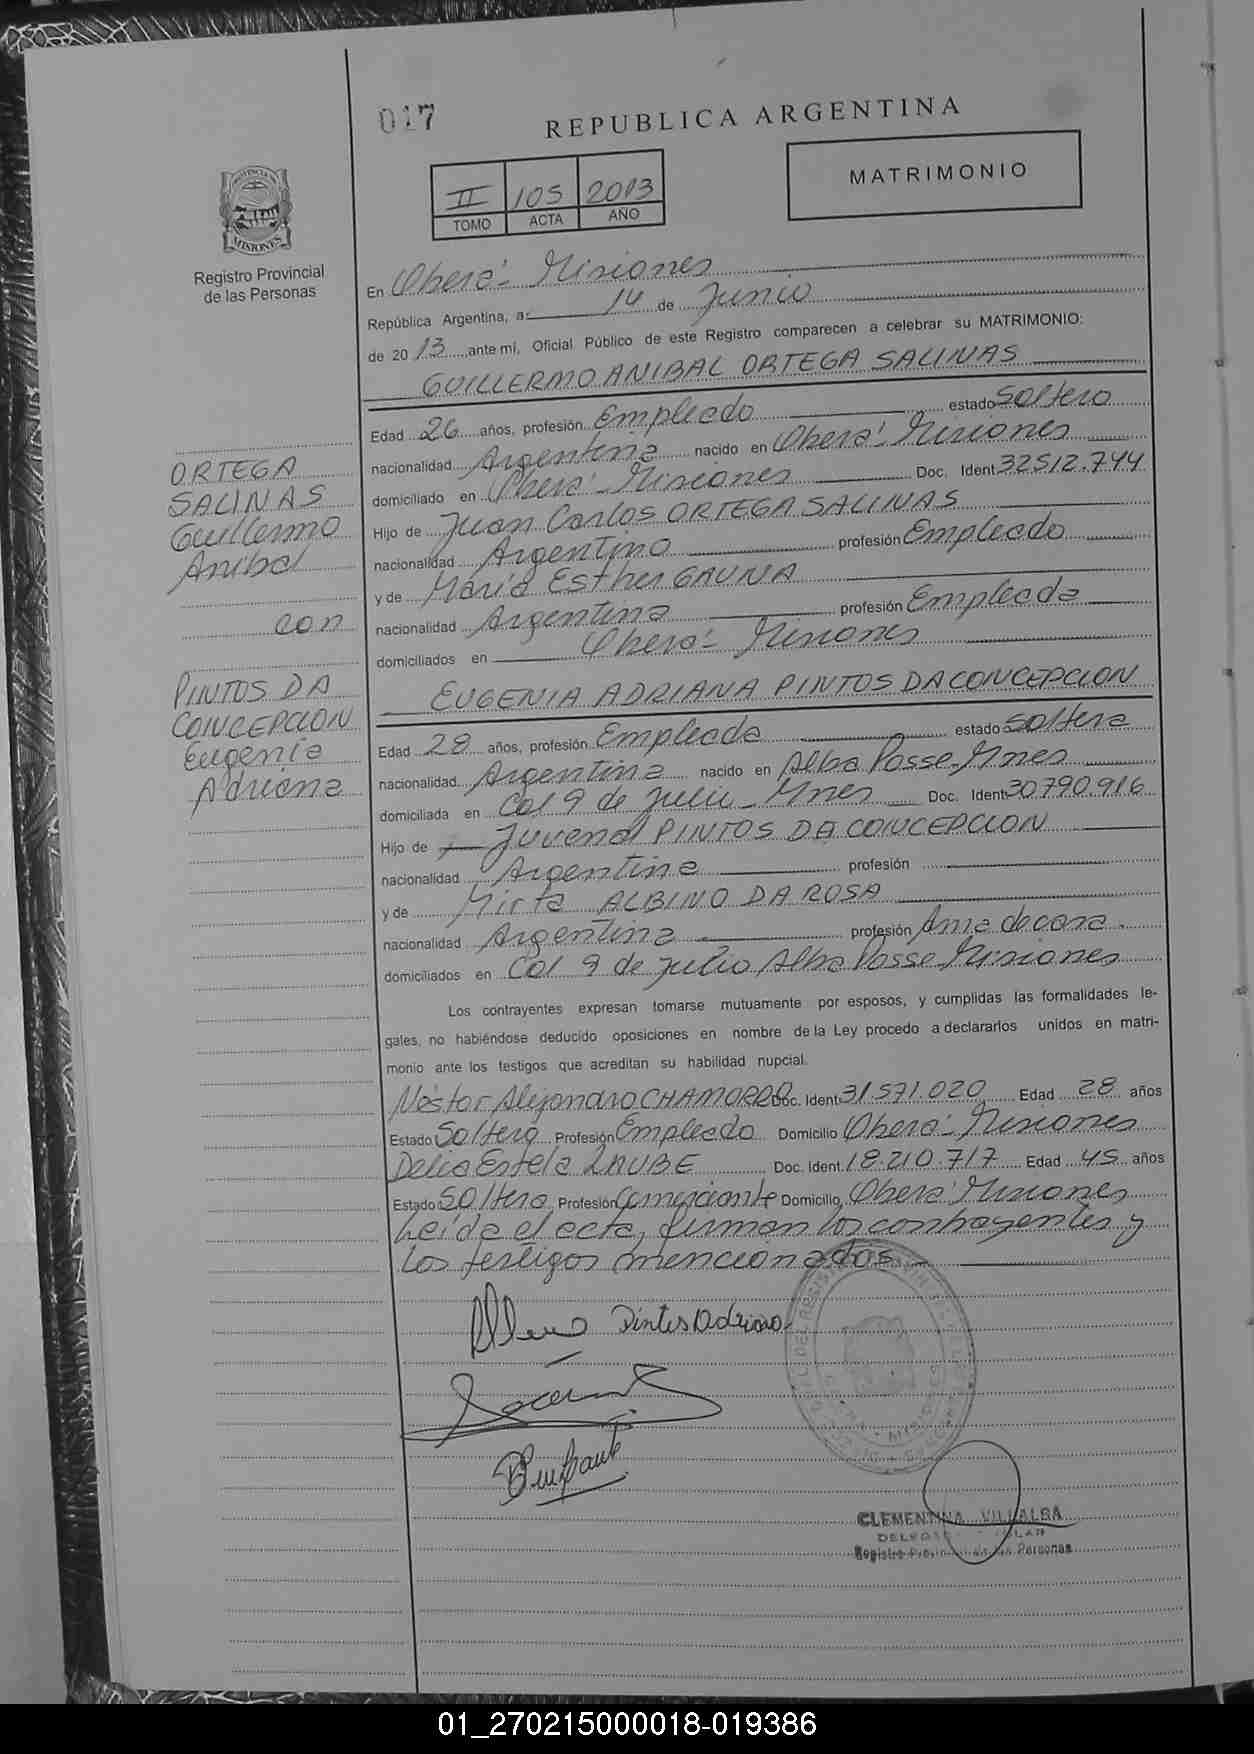 017
REPUBLICA ARGENTINA
II 105 2013
TOMO ACTA AÑO
MATRIMONIO
PROVINCIA DE
MISIONES
Registro Provincial
de las Personas
En Oberá - Misiones
República Argentina, a 14 de Junio
de 20 13 ante mí, Oficial Público de este Registro comparecen a celebrar su MATRIMONIO:
GUILLERMO ANIBAL ORTEGA SALINAS
Edad 26 años, profesión Empleado estado Soltero
nacionalidad Argentina nacido en Oberá - Misiones
domiciliado en Oberá - Misiones Doc. Ident 32512.744
Hijo de Juan Carlos ORTEGA SALINAS
nacionalidad Argentino profesión Empleado
y de María Esther GAUNA
nacionalidad Argentina profesión Empleada
domiciliados en Oberá - Misiones
ORTEGA
SALINAS
Guillermo
Anibal
con
PINTOS DA
CONCEPCION
Eugenia
Adriana
EUGENIA ADRIANA PINTOS DA CONCEPCION
Edad 28 años, profesión Empleada estado soltera
nacionalidad Argentina nacido en Alba Posse - Mnes
domiciliada en Col 9 de Julio - Mnes Doc. Ident 30790.916
Hijo de Juvenal PINTOS DA CONCEPCION
nacionalidad Argentina profesión
y de Mirta ALBINO DA ROSA
nacionalidad Argentina profesión Ama de casa.
domiciliados en Col 9 de Julio Alba Posse Misiones
Los contrayentes expresan tomarse mutuamente por esposos, y cumplidas las formalidades le-
gales, no habiéndose deducido oposiciones en nombre de la Ley procedo a declararlos unidos en matri-
monio ante los testigos que acreditan su habilidad nupcial.
Néstor Alejandro CHAMORRO Doc. Ident 31.571.020 Edad 28 años
Estado Soltero Profesión Empleado Domicilio Oberá - Misiones
Delia Estela LAUBE Doc. Ident. 18.210.717 Edad 45 años
Estado Soltera Profesión Comerciante Domicilio Oberá Misiones
Leída el acta, firman los contrayentes y
los testigos mencionados.
Pintos Adriana
CLEMENTINA VILLALBA
Registro Provincial de las Personas
01_270215000018-019386